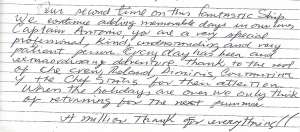 Our second time on this fantastic Ship
We continue adding memorable days in our lives
Captain Antonio, you are a very special
profesional, kind, understanding and very
patient person. Every day has been and
extraordinary adventure thanks to the rest
of the crew, Roland,
& the Chef for their attention
When the holidays are over we only think
of returning for the next summer
A million Thanks for everything!!